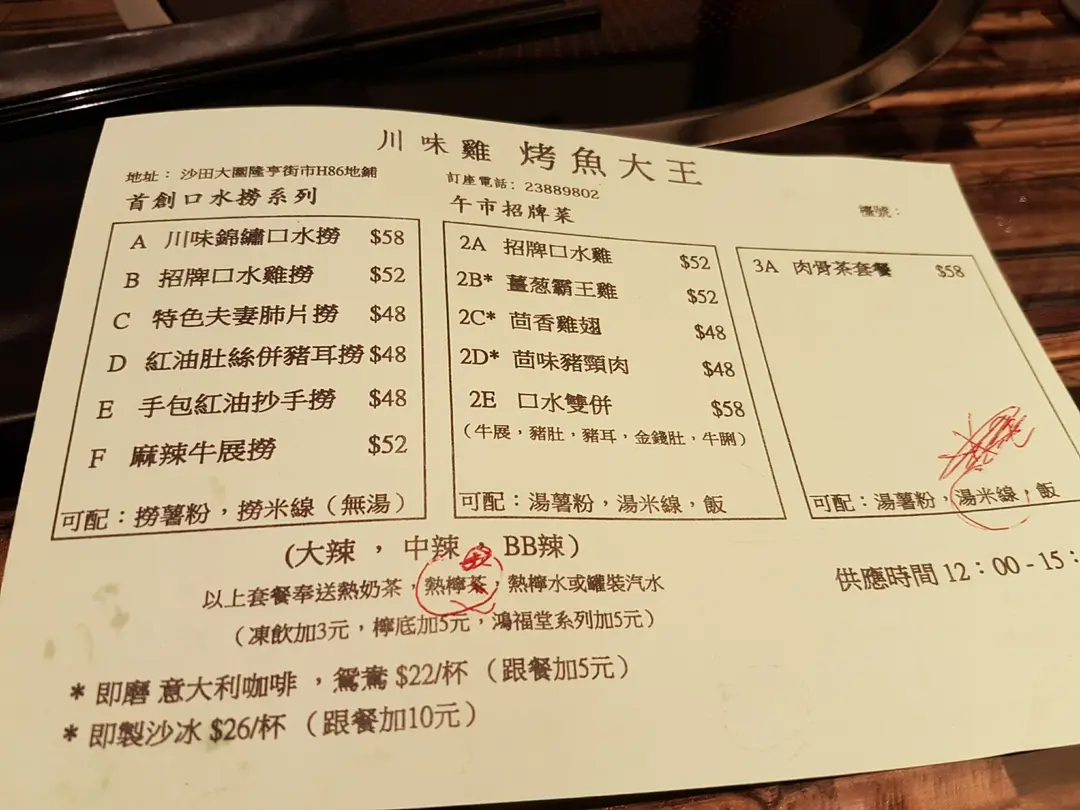 川味雞 烤魚大王
地址： 沙田大圍隆亨街市H86地鋪
訂座電話：23889802
檯號：
首創口水撈系列
A 川味錦繡口水撈 $58
B 招牌口水雞撈 $52
C 特色夫妻肺片撈 $48
D 紅油肚絲併豬耳撈 $48
E 手包紅油抄手撈 $48
F 麻辣牛展撈 $52
可配：撈薯粉，撈米線（無湯）
午市招牌菜
2A 招牌口水雞 $52
2B* 薑葱霸王雞 $52
2C* 茴香雞翅 $48
2D* 茴味豬頸肉 $48
2E 口水雙併 $58
（牛展，豬肚，豬耳，金錢肚，牛脷）
可配：湯薯粉，湯米線，飯
3A 肉骨茶套餐 $58
可配：湯薯粉，湯米線，飯
(大辣 ， 中辣 ， BB辣）
供應時間 12：00 - 15：
以上套餐奉送熱奶茶，熱檸茶，熱檸水或罐裝汽水
（凍飲加3元，檸底加5元，鴻福堂系列加5元）
* 即磨 意大利咖啡 ，鴛鴦 $22/杯 （跟餐加5元）
* 即製沙冰 $26/杯 （跟餐加10元）